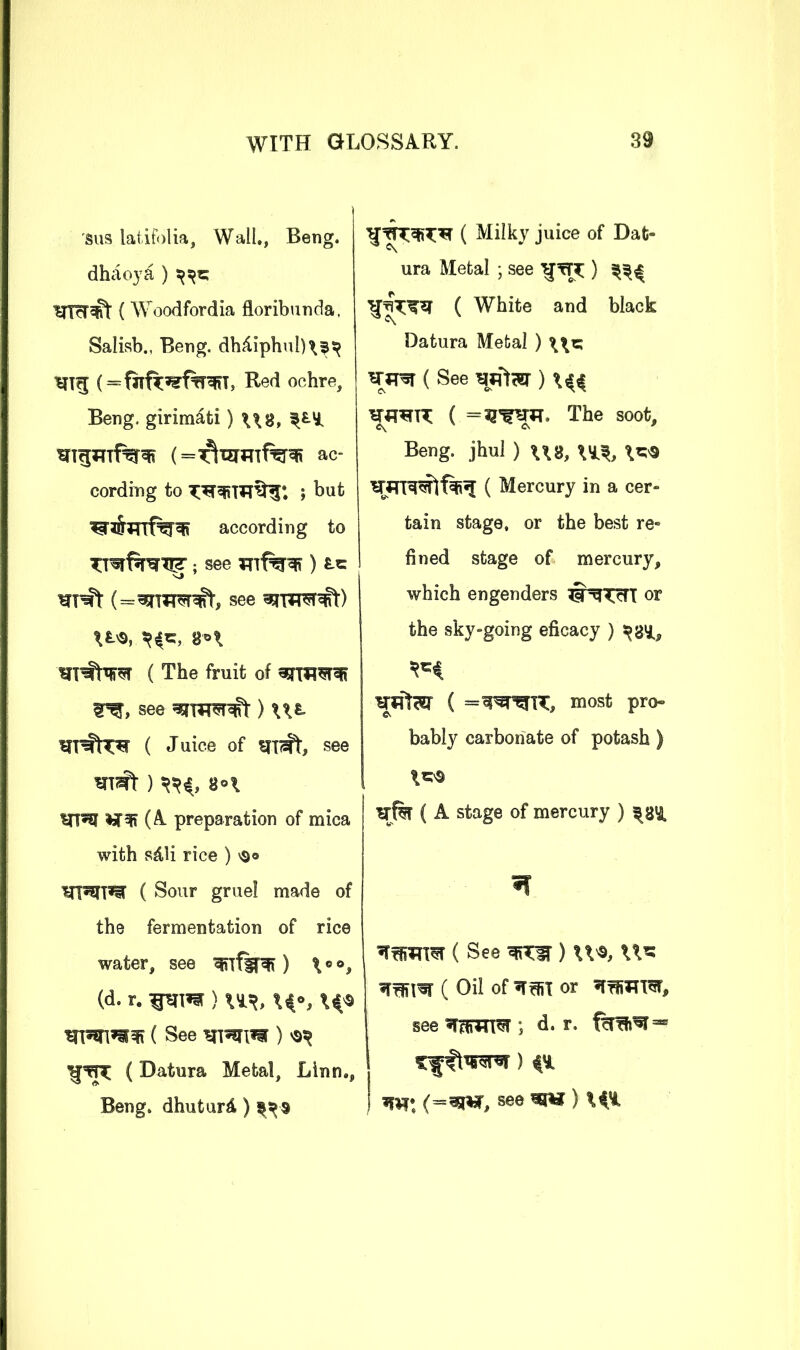 WITH GLOSSARY. 39
sus latifolia, Wall., Beng.
dháoyá ) २२८
धातकी ( Woodfordia floribunda,
Salisb., Beng. dháiphul)१३२
धातु (=गिरिमृत्तिका, Red ochre,
Beng. girimáti ) ११४, २९५
धातुमाक्षिक (=रौप्यमाक्षिक ac-
cording to ; but
स्वर्णमाक्षिक according to
; see माक्षिक ) ९८
धात्री (=आमलकी, see आमलकी)
१९७, २६८, ४०१
धात्रीफल ( The fruit of आमलकी
वृक्ष, see आमलकी ) ११९
धात्रीरस ( Juice of धात्री, see
धात्री ) २२६, ४०१
धान्य अभ्रक (A preparation of mica
with sáli rice ) ७०
धान्याम्ल ( Sour gruel made of
the fermentation of rice
water, see काञ्जिक ) १००,
(d. r. ) १५२, १६०, १६७
धान्याम्लक ( See धान्याम्ल ) ७२
धुस्तुर ( Datura Metal, Linn.,
Beng. dhuturá ) १२७
( Milky juice of Dat-
ura Metal ; see धुस्तुर ) २२६
( White and black
Datura Metal ) ११८
( See ) १६६
धूमसार ( = गृहधूम. The soot,
Beng. jhul ) ११४, १५३, १८७
( Mercury in a cer-
tain stage, or the best re-
fined stage of mercury,
which engenders or
the sky-going eficacy ) २४५,
२८६
( = , most pro-
bably carbonate of potash )
१८७
( A stage of mercury ) २४५
न
नक्तमाल ( See करञ्ज ) ११७, ११८
( Oil of or नक्तमाल,
see नक्तमाल ; d. r.
) ६५
नभः (=अभ्र, see अभ्र ) १६५